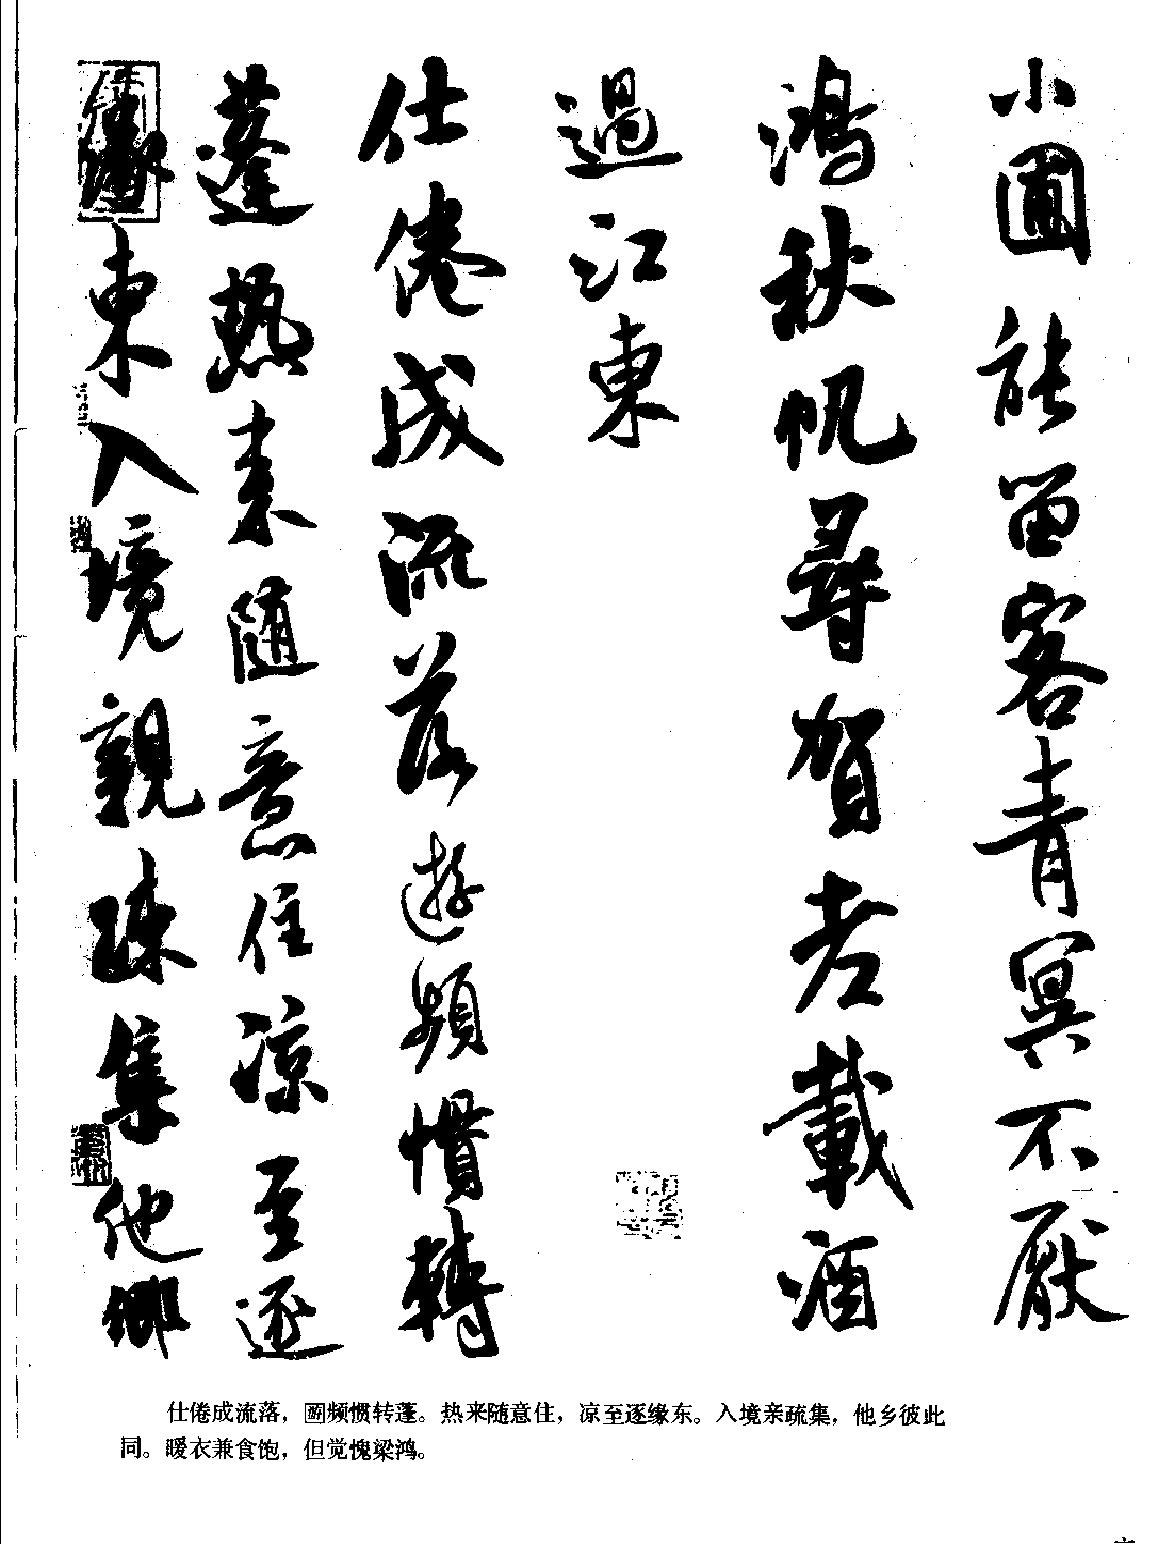 小圃能留客青冥不厭
鴻秋帆尋賀老載酒
過江東
仕倦成流落遊頻慣轉
蓬熱来随意住凉至逐
縁東入境親疎集他鄉
仕倦成流落，圙频惯转蓬。热来随意住，凉至逐缘东。入境亲疏集，他乡彼此
同。暖衣兼食饱，但觉愧梁鸿。